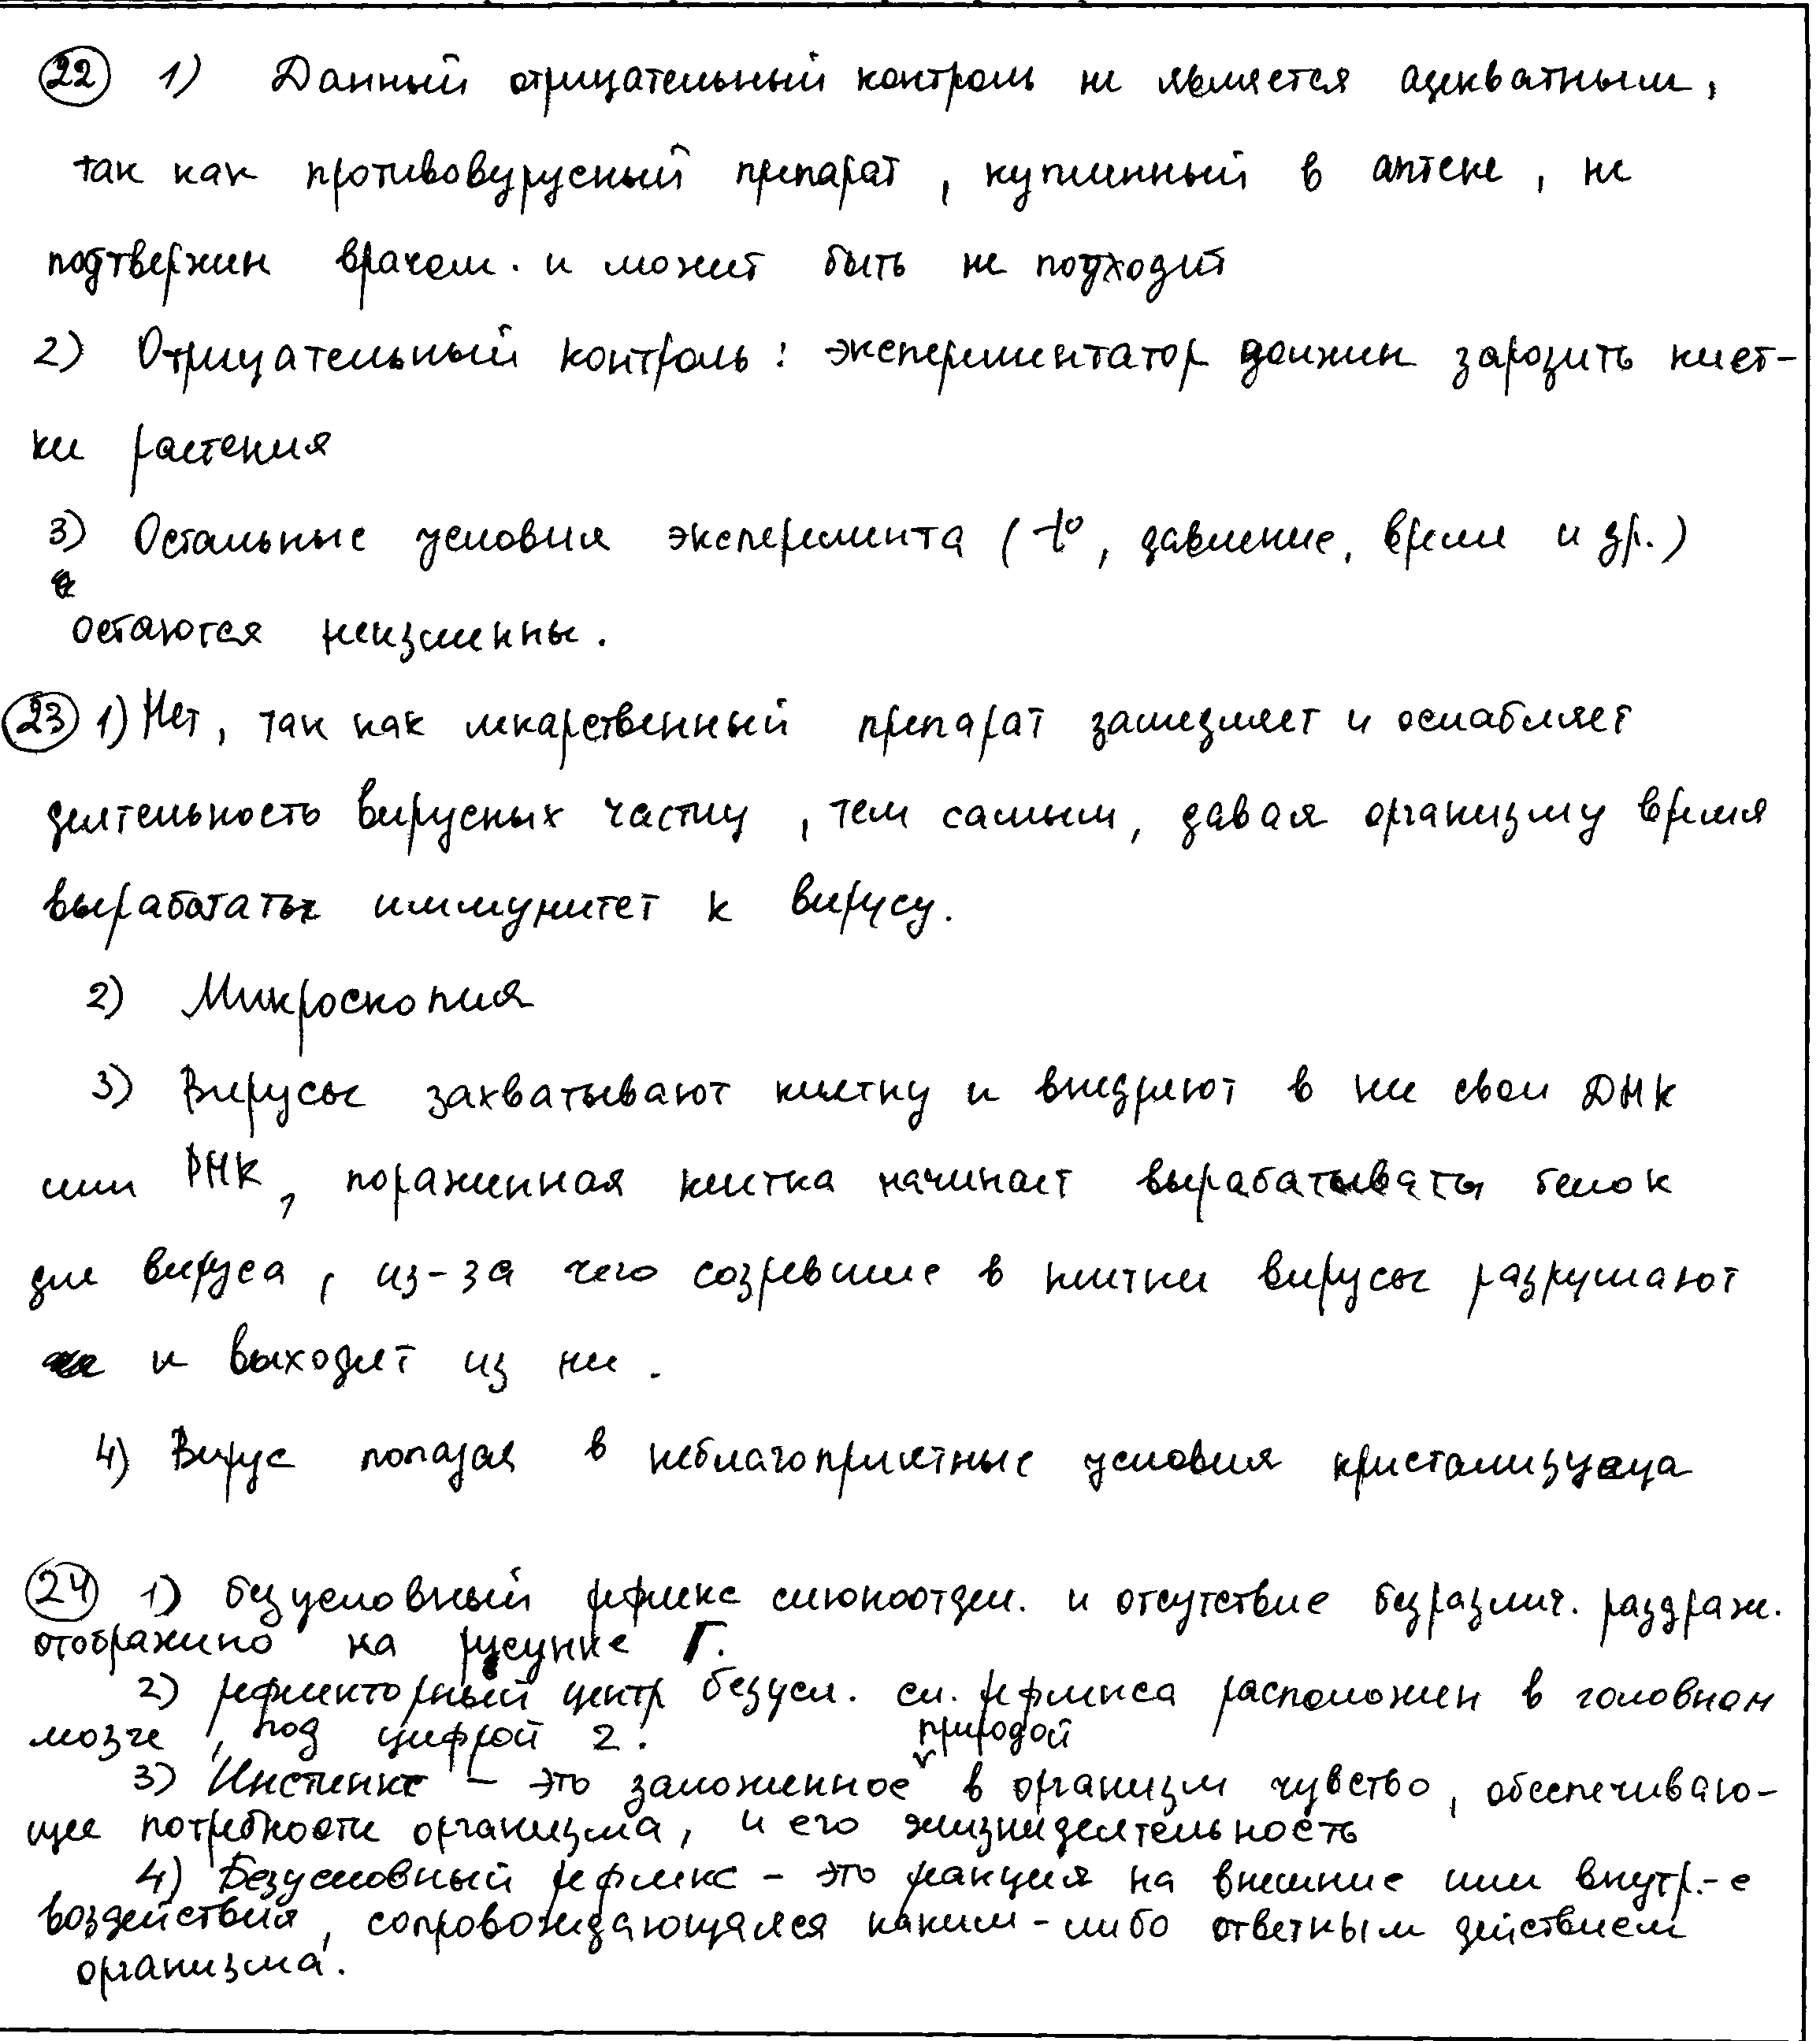 22 1) Данный отрицательный контроль не является адекватным,
так как противовурусный препарат, купленный в аптеке, не
подтвержин врачом. и может быть не подходит
2) Отрицательный контроль: экспериментатор должен зарозить клет-
ки растения
3) Остальные условия эксперимента (t°, давление, время и др.)
остаются неизменны.
23 1) Нет, так как лекарственный препарат замедляет и ослабляет
деятельность вирусных частиц, тем самым, давая организму время
выработать иммунитет к вирусу.
2) Микроскопия
3) Вирусы захватывают клетку и внедряют в нее свои ДНК
или РНК, пораженная клетка начинает вырабатывать белок
для вируса, из-за чего созревшие в клетки вирусы разрушают
и выходят из нее.
4) Вирус попадая в неблагоприятные условия кристализуеца
24 1) безусловный рефлекс слюноотдел. и отсутствие безразлич. раздраж.
отображено на рисунке Г.
2) рефлекторный центр безусл. сл. рефлекса расположен в головном
мозге, под цифрой 2.
3) Инстинкт – это заложенное природой в организм чувство, обеспечиваю-
щее потребности организма, и его жизнедеятельность
4) Безусловный рефлекс – это реакция на внешние или внутр.-е
воздействия, сопровождающаяся каким-либо ответным действием
организма.